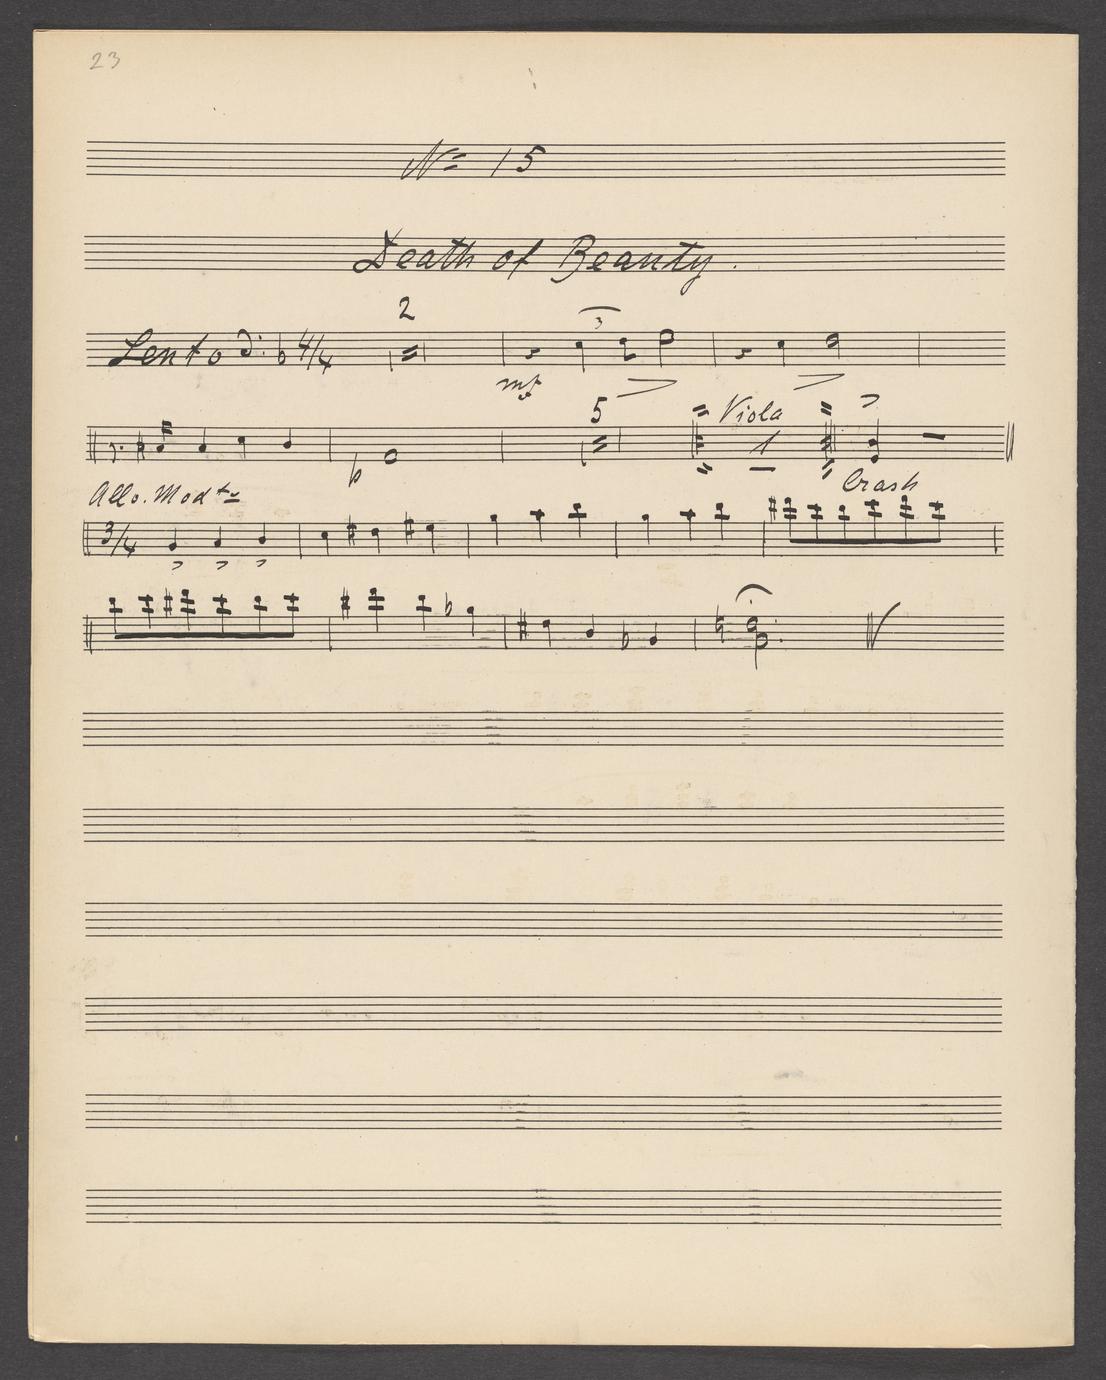 23
Nº 15
Death of Beauty.
2
Lento 4/4
3
mf
5 Viola
1
Allo. Modto Crash
3/4